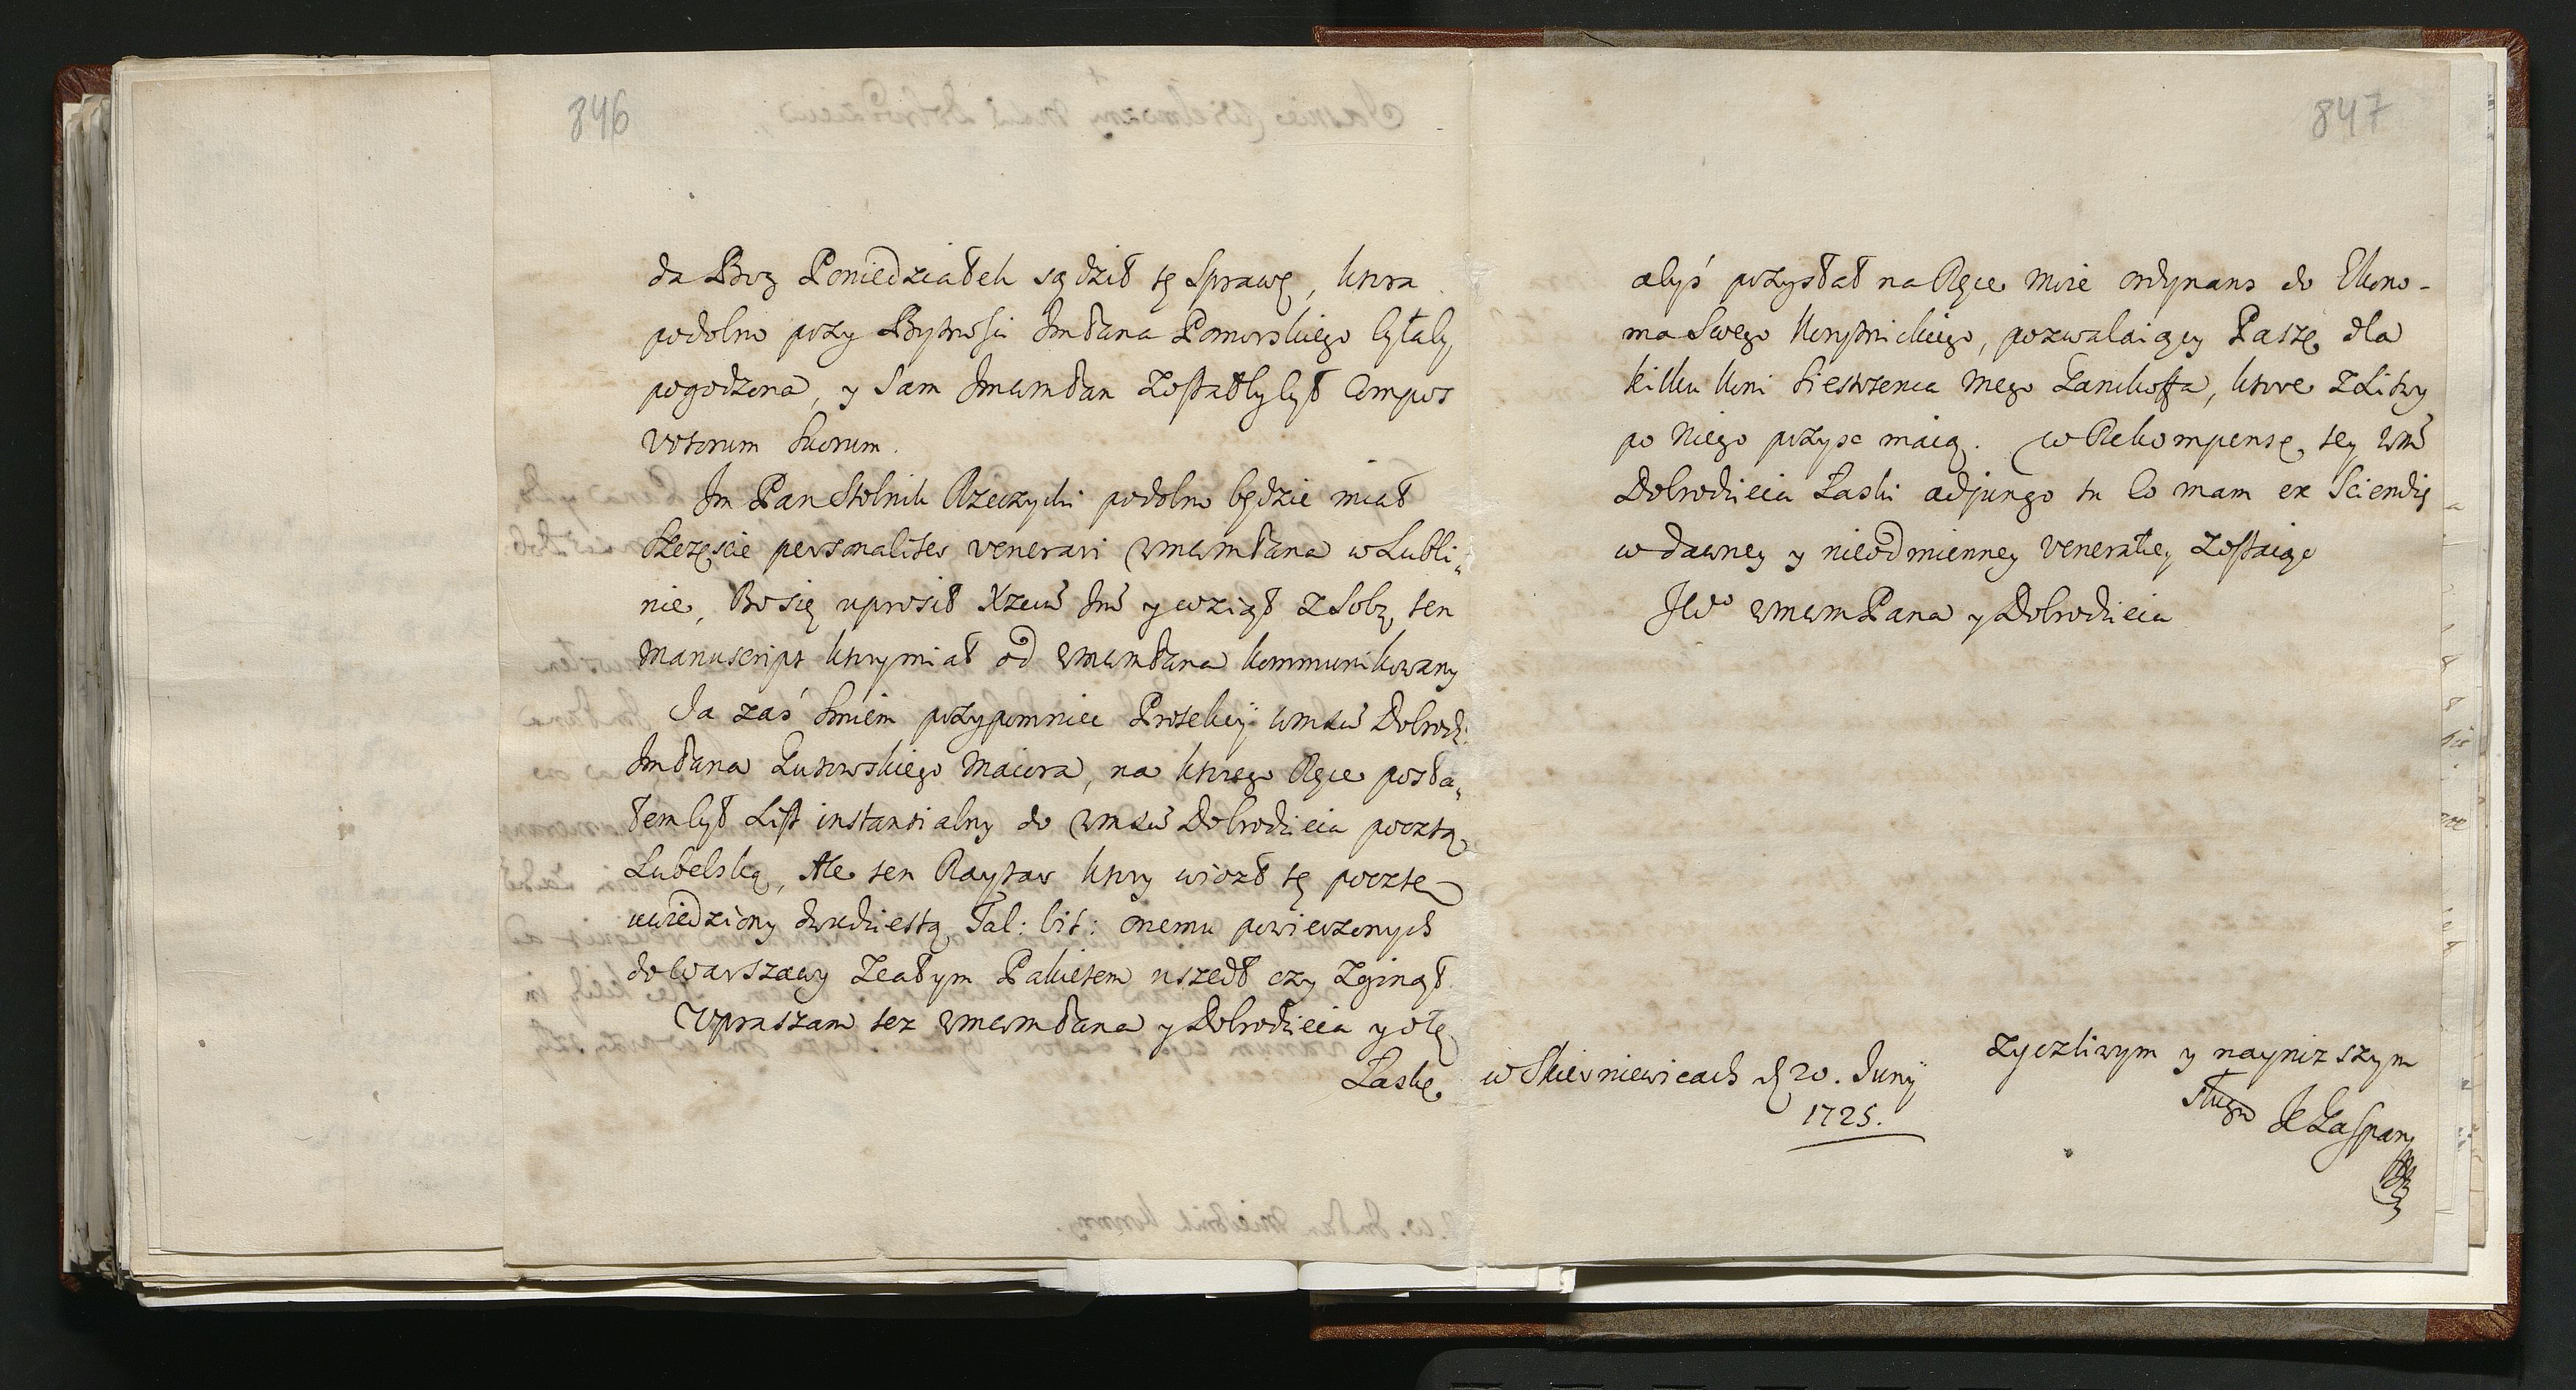 846
da Bog Poniedziałek sądził tę Sprawę, ktora
podobno przy Bytnosci ImPana Pomorskiego byłaby
pogodzona, y Sam ImcmPan Zostałby był Compos
Votorum Suorum.
Im Pan Stolnik Rzeczycki podobno będzie miał
Szczęscie personaliter venerari WmcmPana w Lubli„
nie, Bo się uprosił Xzcia Im y wziął z Sobą ten
Manuscript ktory miał od WmcmPana kommunikowany
Ja zaś Smiem przypomniec Protekcij Dobrodz:
ImPana Lutowskiego Maiora, na ktorego Ręce posła„
łem był List instantialny do Dobrodzieia pocztą
Lubelską, Ale ten Raytar ktory wiozł tę pocztę
uwiedziony dwudziestą Tal: bit: onemu powierzonych
do Warszawy Zcałym Pakietem uszedł czy Zginął.
Upraszam tez WmcmPana y Dobrodzieia y o tę
Łaskę
847
abyś przysłał na Ręce Moie ordynans do Ekono-
ma Swego, pozwalaiący Paszę dla
kilku koni Siestrzenca Mego, ktore z Litwy
po Niego przysc maią. W Rekompensę tey Wm
Dobrodzieia Łaski adjungo tu Co mam ex Sciendis
w dawney y nieodmienney Veneratiey Zostaiąc
JW° WmcmPana y Dobrodzieia
zyczliwym y nayniz szym
sługą
w Skierniewicach d 20. Junij
1725.